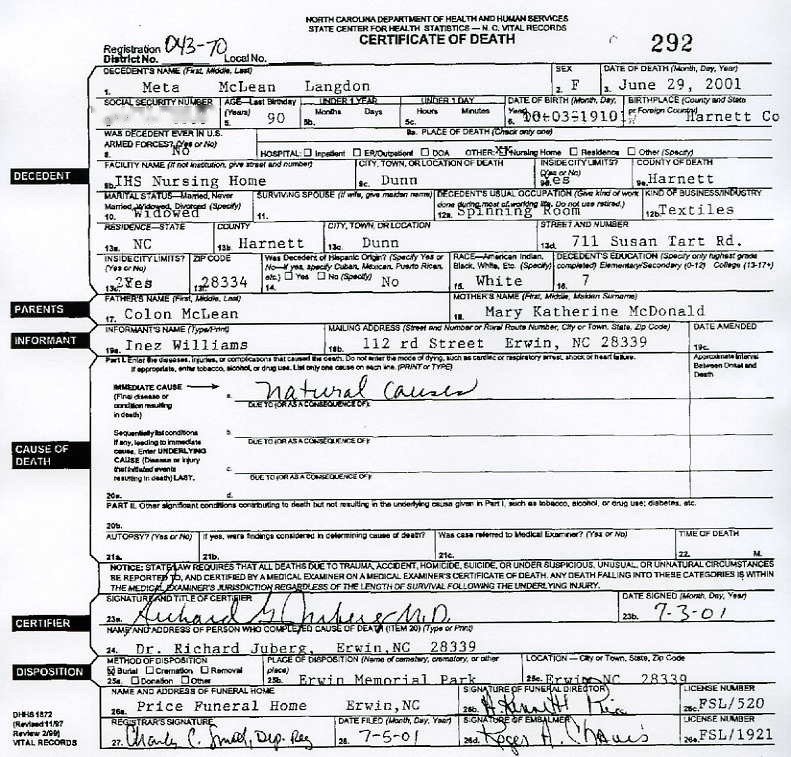 NORTH CAROLINA DEPARTMENT OF HEALTH AND HUMAN SERVICES
STATE CENTER FOR HEALTH STATISTICS — N. C. VITAL RECORDS
CERTIFICATE OF DEATH
292
Registration District No. 043-70 Local No.
DECEDENT'S NAME (First, Middle, Last) SEX DATE OF DEATH (Month, Day, Year)
1. Meta McLean Langdon 2. F 3. June 29, 2001
SOCIAL SECURITY NUMBER AGE—Last Birthday (Years) UNDER 1 YEAR UNDER 1 DAY DATE OF BIRTH (Month, Day, Year) BIRTHPLACE (County and State or Foreign Country)
5. 90 5b. Months Days 5c. Hours Minutes 6. 10-03-1910 Harnett Co
WAS DECEDENT EVER IN U.S. ARMED FORCES? (Yes or No) 9a. PLACE OF DEATH (Check only one)
8. No HOSPITAL: Inpatient ER/Outpatient DOA OTHER: Nursing Home Residence Other (Specify)
DECEDENT
FACILITY NAME (If not institution, give street and number) CITY, TOWN, OR LOCATION OF DEATH INSIDE CITY LIMITS? (Yes or No) COUNTY OF DEATH
9b. IHS Nursing Home 9c. Dunn 9d. Yes 9e. Harnett
MARITAL STATUS—Married, Never Married, Widowed, Divorced (Specify) SURVIVING SPOUSE (If wife, give maiden name) DECEDENT'S USUAL OCCUPATION (Give kind of work done during most of working life. Do not use retired.) KIND OF BUSINESS/INDUSTRY
10. Widowed 11. 12a. Spinning Room 12b. Textiles
RESIDENCE—STATE COUNTY CITY, TOWN, OR LOCATION STREET AND NUMBER
13a. NC 13b. Harnett 13c. Dunn 13d. 711 Susan Tart Rd.
INSIDE CITY LIMITS? (Yes or No) ZIP CODE Was Decedent of Hispanic Origin? (Specify Yes or No—If yes, specify Cuban, Mexican, Puerto Rican, etc.) Yes No (Specify) RACE—American Indian, Black, White, Etc. (Specify) DECEDENT'S EDUCATION (Specify only highest grade completed) Elementary/Secondary (0-12) College (13-17+)
13e. Yes 13f. 28334 14. No 15. White 16. 7
PARENTS
FATHER'S NAME (First, Middle, Last) MOTHER'S NAME (First, Middle, Maiden Surname)
17. Colon McLean 18. Mary Katherine McDonald
INFORMANT
INFORMANT'S NAME (Type/Print) MAILING ADDRESS (Street and Number or Rural Route Number, City or Town, State, Zip Code) DATE AMENDED
19a. Inez Williams 19b. 112 rd Street Erwin, NC 28339 19c.
Part I. Enter the diseases, injuries, or complications that caused the death. Do not enter the mode of dying, such as cardiac or respiratory arrest, shock or heart failure.
If appropriate, enter tobacco, alcohol, or drug use. List only one cause on each line. (PRINT or TYPE)
Approximate Interval Between Onset and Death
CAUSE OF DEATH
IMMEDIATE CAUSE (Final disease or condition resulting in death) a. natural causes
DUE TO (OR AS A CONSEQUENCE OF):
Sequentially list conditions if any, leading to immediate cause. Enter UNDERLYING CAUSE (Disease or injury that initiated events resulting in death) LAST.
b.
DUE TO (OR AS A CONSEQUENCE OF):
c.
DUE TO (OR AS A CONSEQUENCE OF):
20a. d.
PART II. Other significant conditions contributing to death but not resulting in the underlying cause given in Part I, such as tobacco, alcohol, or drug use; diabetes, etc.
20b.
AUTOPSY? (Yes or No) If yes, were findings considered in determining cause of death? Was case referred to Medical Examiner? (Yes or No) TIME OF DEATH
21a. 21b. 21c. 22. M.
NOTICE: STATE LAW REQUIRES THAT ALL DEATHS DUE TO TRAUMA, ACCIDENT, HOMICIDE, SUICIDE, OR UNDER SUSPICIOUS, UNUSUAL, OR UNNATURAL CIRCUMSTANCES
BE REPORTED TO, AND CERTIFIED BY A MEDICAL EXAMINER ON A MEDICAL EXAMINER'S CERTIFICATE OF DEATH. ANY DEATH FALLING INTO THESE CATEGORIES IS WITHIN
THE MEDICAL EXAMINER'S JURISDICTION REGARDLESS OF THE LENGTH OF SURVIVAL FOLLOWING THE UNDERLYING INJURY.
CERTIFIER
SIGNATURE AND TITLE OF CERTIFIER DATE SIGNED (Month, Day, Year)
23a. Richard G. Juberg M.D. 23b. 7-3-01
NAME AND ADDRESS OF PERSON WHO COMPLETED CAUSE OF DEATH (ITEM 20) (Type or Print)
24. Dr. Richard Juberg, Erwin,NC 28339
DISPOSITION
METHOD OF DISPOSITION PLACE OF DISPOSITION (Name of cemetery, crematory, or other place) LOCATION — City or Town, State, Zip Code
25a. Burial Cremation Removal Donation Other 25b. Erwin Memorial Park 25c. Erwin NC 28339
NAME AND ADDRESS OF FUNERAL HOME SIGNATURE OF FUNERAL DIRECTOR LICENSE NUMBER
26a. Price Funeral Home Erwin,NC 26b. 26c. FSL/520
REGISTRAR'S SIGNATURE DATE FILED (Month, Day, Year) SIGNATURE OF EMBALMER LICENSE NUMBER
27. Dep. Reg 28. 7-5-01 26d. Roger H. 26e. FSL/1921
DHHS 1872
(Revised 11/97
Review 2/99)
VITAL RECORDS